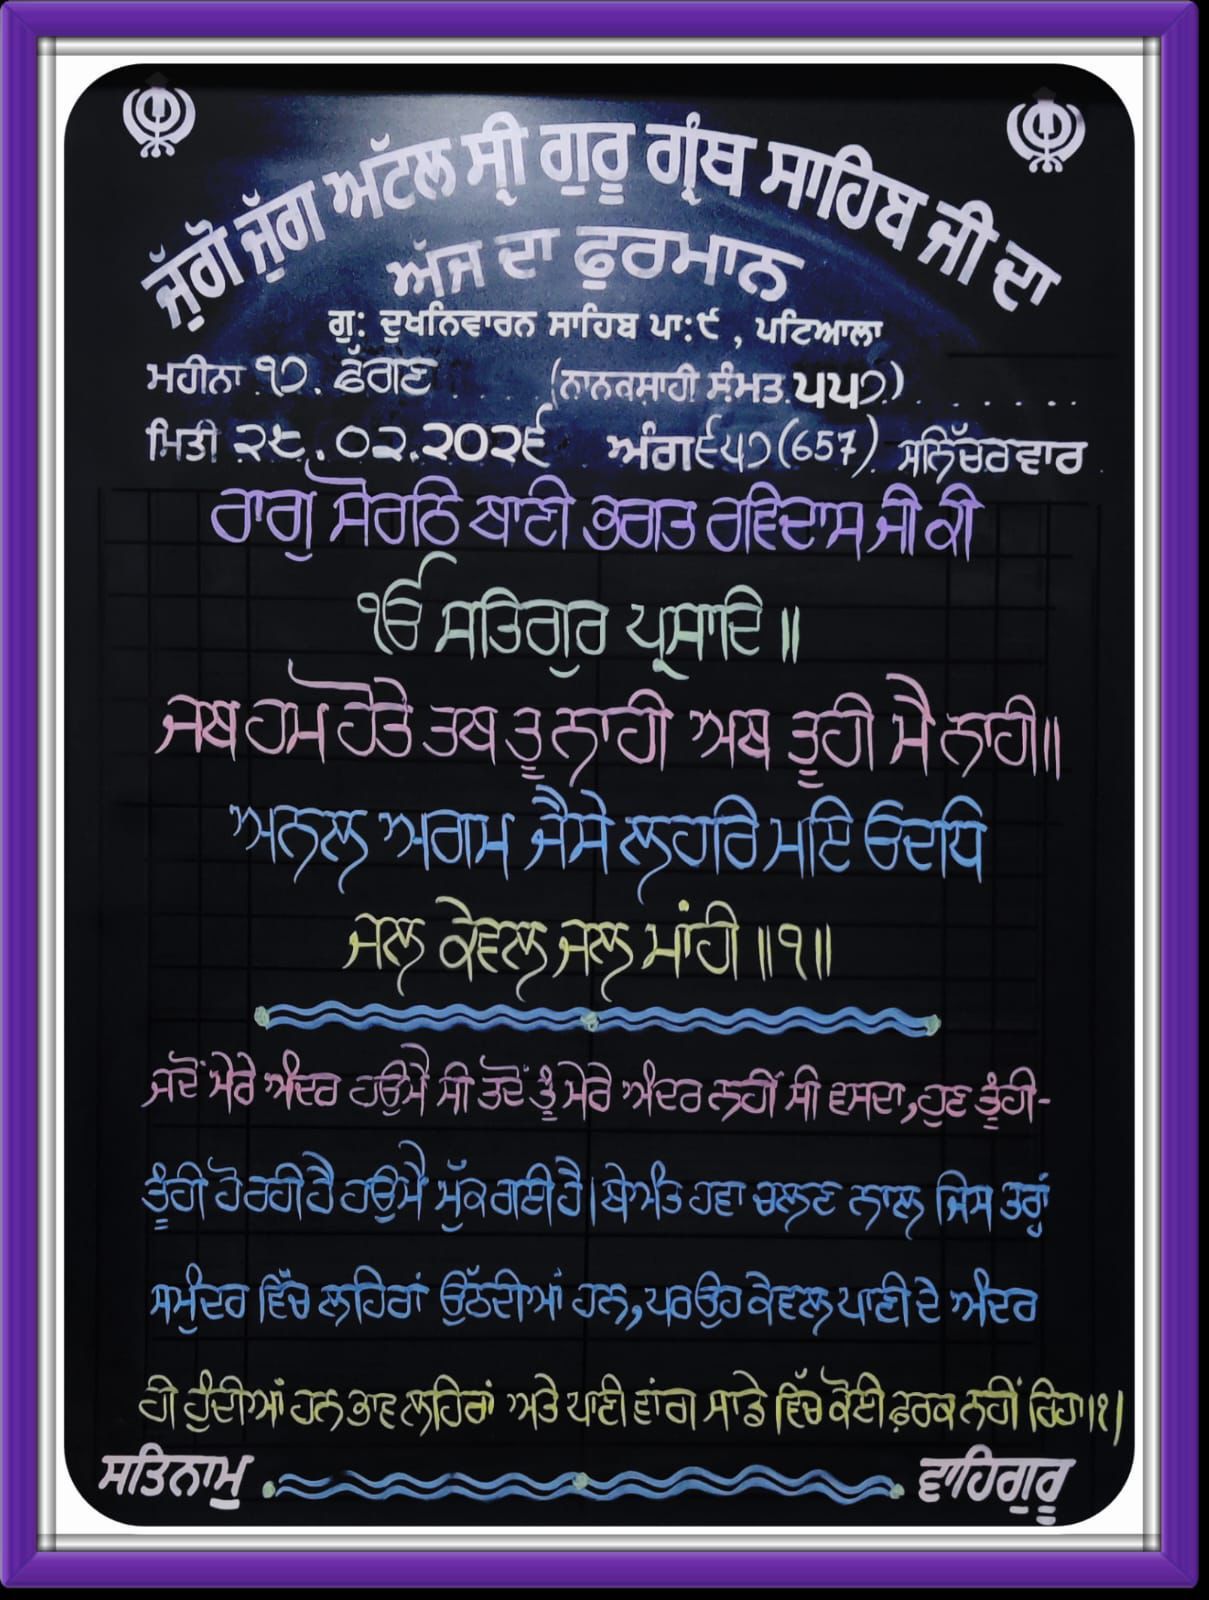 ਜੁੱਗੋ ਜੁੱਗ ਅੱਟੱਲ ਸ੍ਰੀ ਗੁਰੂ ਗ੍ਰੰਥ ਸਾਹਿਬ ਜੀ ਦਾ
ਅੱਜ ਦਾ ਫੁਰਮਾਨ
ਗੁ: ਦੁਖਨਿਵਾਰਨ ਸਾਹਿਬ ਪਾ:੯ , ਪਟਿਆਲਾ
ਮਹੀਨਾ ੧੭. ਫੱਗਣ (ਨਾਨਕਸ਼ਾਹੀ ਸੰਮਤ ੫੫੭)
ਮਿਤੀ ੨੮.੦੨.੨੦੨੬ ਅੰਗ ੬੫੭ (657) ਸਨਿੱਚਰਵਾਰ
ਰਾਗੁ ਸੋਰਠਿ ਬਾਣੀ ਭਗਤ ਰਵਿਦਾਸ ਜੀ ਕੀ
ੴ ਸਤਿਗੁਰ ਪ੍ਰਸਾਦਿ ॥
ਜਬ ਹਮ ਹੋਤੇ ਤਬ ਤੂ ਨਾਹੀ ਅਬ ਤੂਹੀ ਮੈ ਨਾਹੀ॥
ਅਨਲ ਅਗਮ ਜੈਸੇ ਲਹਰਿ ਮਇ ਓਦਧਿ
ਜਲ ਕੇਵਲ ਜਲ ਮਾਂਹੀ ॥੧॥
ਜਦੋਂ ਮੇਰੇ ਅੰਦਰ ਹਉਮੈ ਸੀ ਤਦੋਂ ਤੂੰ ਮੇਰੇ ਅੰਦਰ ਨਹੀਂ ਸੀ ਵਸਦਾ, ਹੁਣ ਤੂੰਹੀ-
ਤੂੰਹੀ ਹੋ ਰਹੀ ਹੈ ਹਉਮੈ ਮੁੱਕ ਗਈ ਹੈ। ਬੇਅੰਤ ਹਵਾ ਚਲਣ ਨਾਲ ਜਿਸ ਤਰ੍ਹਾਂ
ਸਮੁੰਦਰ ਵਿੱਚ ਲਹਿਰਾਂ ਉੱਠਦੀਆਂ ਹਨ, ਪਰ ਉਹ ਕੇਵਲ ਪਾਣੀ ਦੇ ਅੰਦਰ
ਹੀ ਹੁੰਦੀਆਂ ਹਨ ਭਾਵ ਲਹਿਰਾਂ ਅਤੇ ਪਾਣੀ ਵਾਂਗ ਸਾਡੇ ਵਿੱਚ ਕੋਈ ਫ਼ਰਕ ਨਹੀਂ ਰਿਹਾ।੧।
ਸਤਿਨਾਮੁ ਵਾਹਿਗੁਰੂ